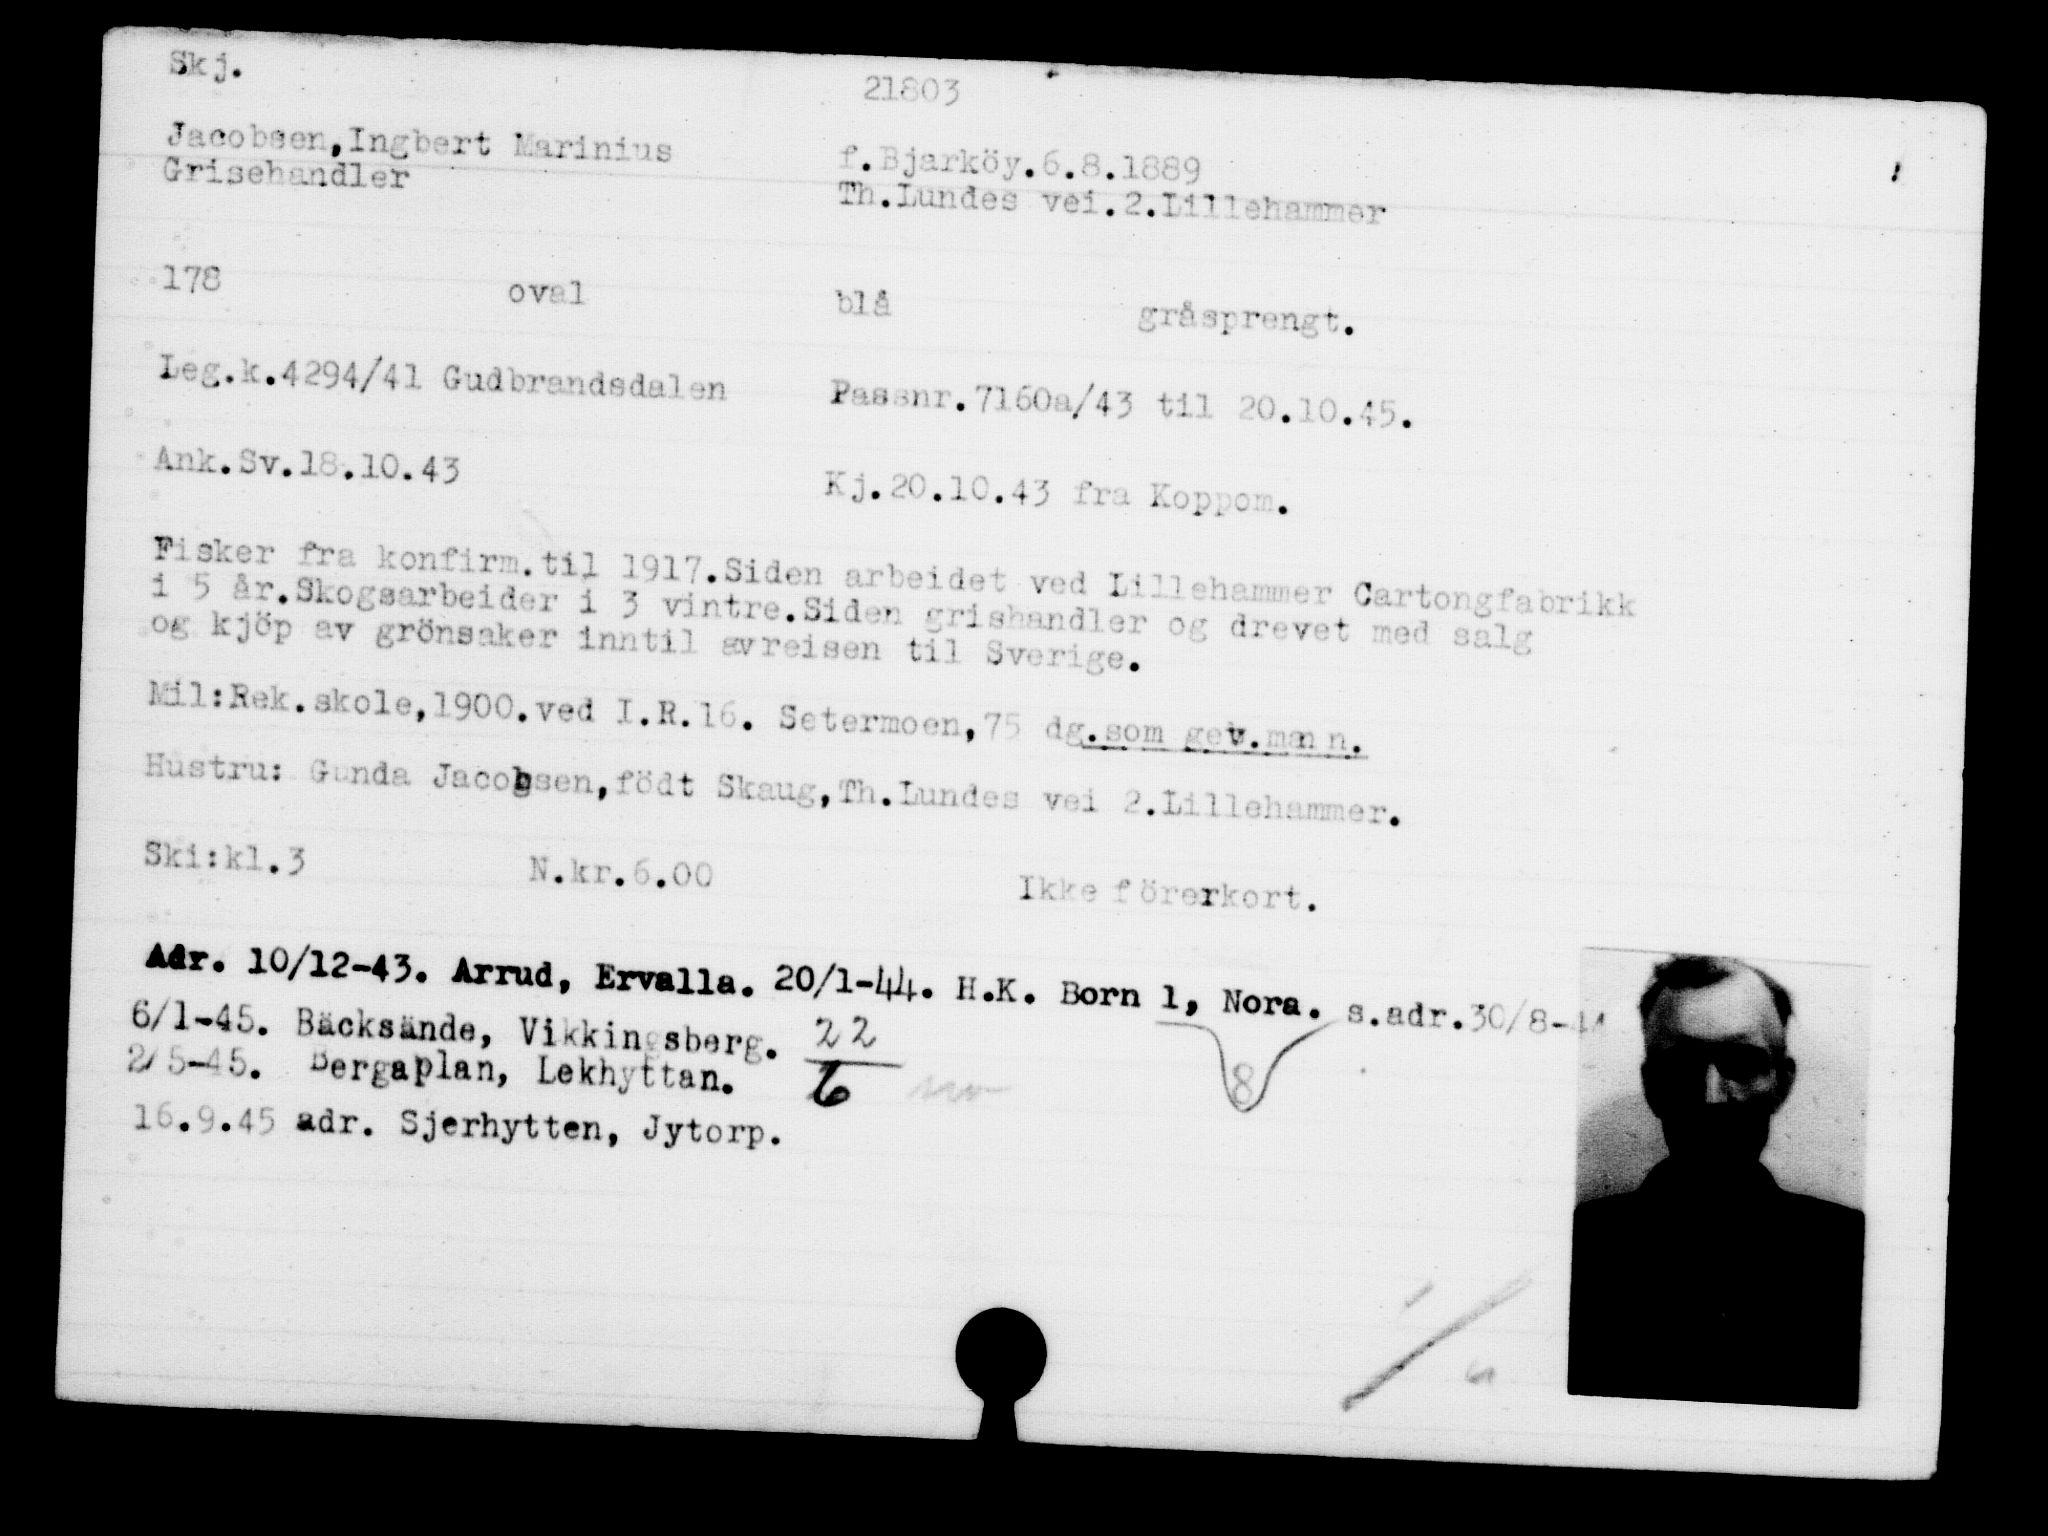 Skj.
21803
Jacobsen,Ingbert Marinius
f.Bjarköy.6.8.1889
Grisehandler
Th.Lundes vei.2.Lillehammer
178 oval blå gråsprengt.
Leg.k.4294/41 Gudbrandsdalen
Passnr.7160a/43 til 20.10.45.
Ank.Sv.18.10.43
Kj.20.10.43 fra Koppom.
Fisker fra konfirm.til 1917.Siden arbeidet ved Lillehammer Cartongfabrikk
i 5 år.Skogsarbeider i 3 vintre.Siden grishandler og drevet med salg
og kjöp av grönsaker inntil avreisen til Sverige.
Mil:Rek.skole,1900.ved I.R.16. Setermoen,75 dg.som gev.mann.
Hustru: Gunda Jacobsen,födt Skaug,Th.Lundes vei 2.Lillehammer.
Ski:kl.3 N.kr.6.00 Ikke förerkort.
Adr. 10/12-43. Arrud, Ervalla. 20/1-44. H.K. Born 1, Nora. s.adr.30/8-44
6/1-45. Bäcksände, Vikkingsberg. 22
2/5-45. Bergaplan, Lekhyttan. 6
8
16.9.45 adr. Sjerhytten, Jytorp.